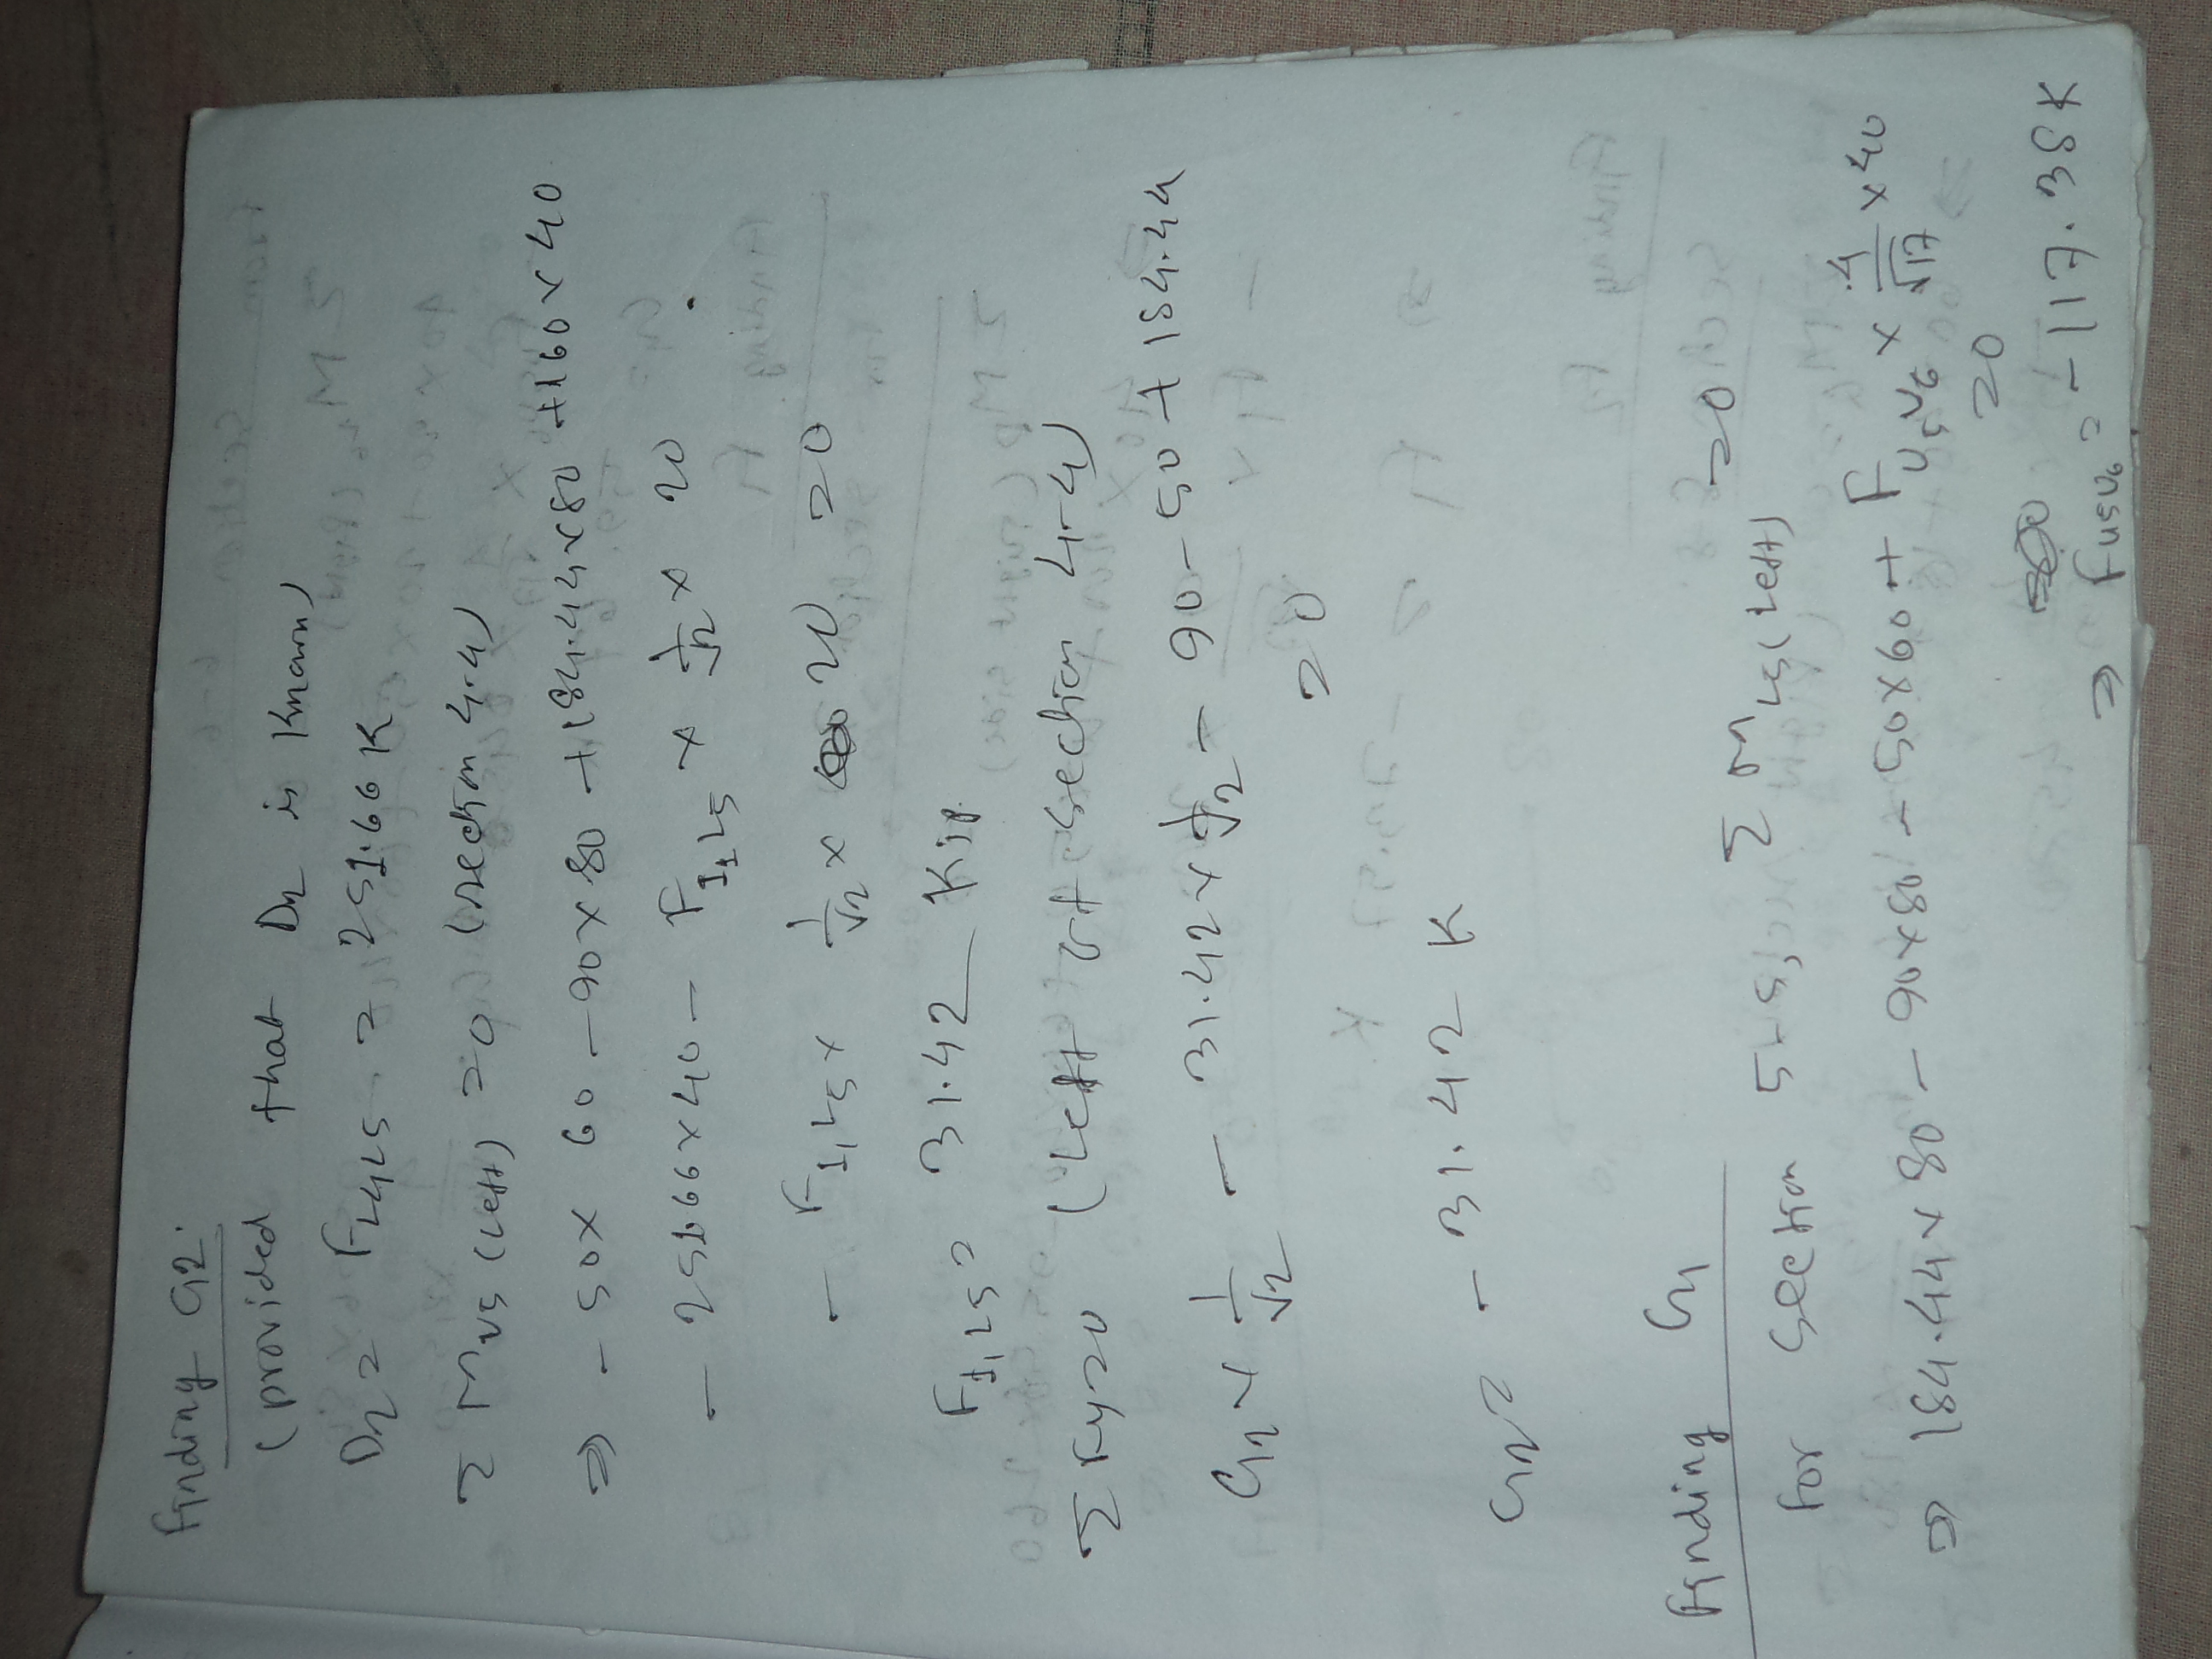 Finding G2:
(provided that D2 is known)
D2 = F L4L5 = 251.66 K
Σ M U5 (Left) = 0 (section 4-4)
⇒ - 50 x 60 - 90 x 80 + 184.44 x 80 + 160 x 40
- 251.66 x 40 - F I1L5 x 1/√2 x 20
- F I1L5 x 1/√2 x 20 = 0
F I1L5 = 31.42 Kip.
Σ Fy = 0 (Left of section 4-4)
G2 x 1/√2 - 31.42 x 1/√2 - 90 - 50 + 184.44
= 0
G2 = - 31.42 K
Finding G1
For section 5-5, Σ M L5 (Left) = 0
⇒ 184.44 x 80 - 90 x 80 - 50 x 60 + F U5U6 x 4/√17 x 40
= 0
⇒ F U5U6 = - 117.38 K